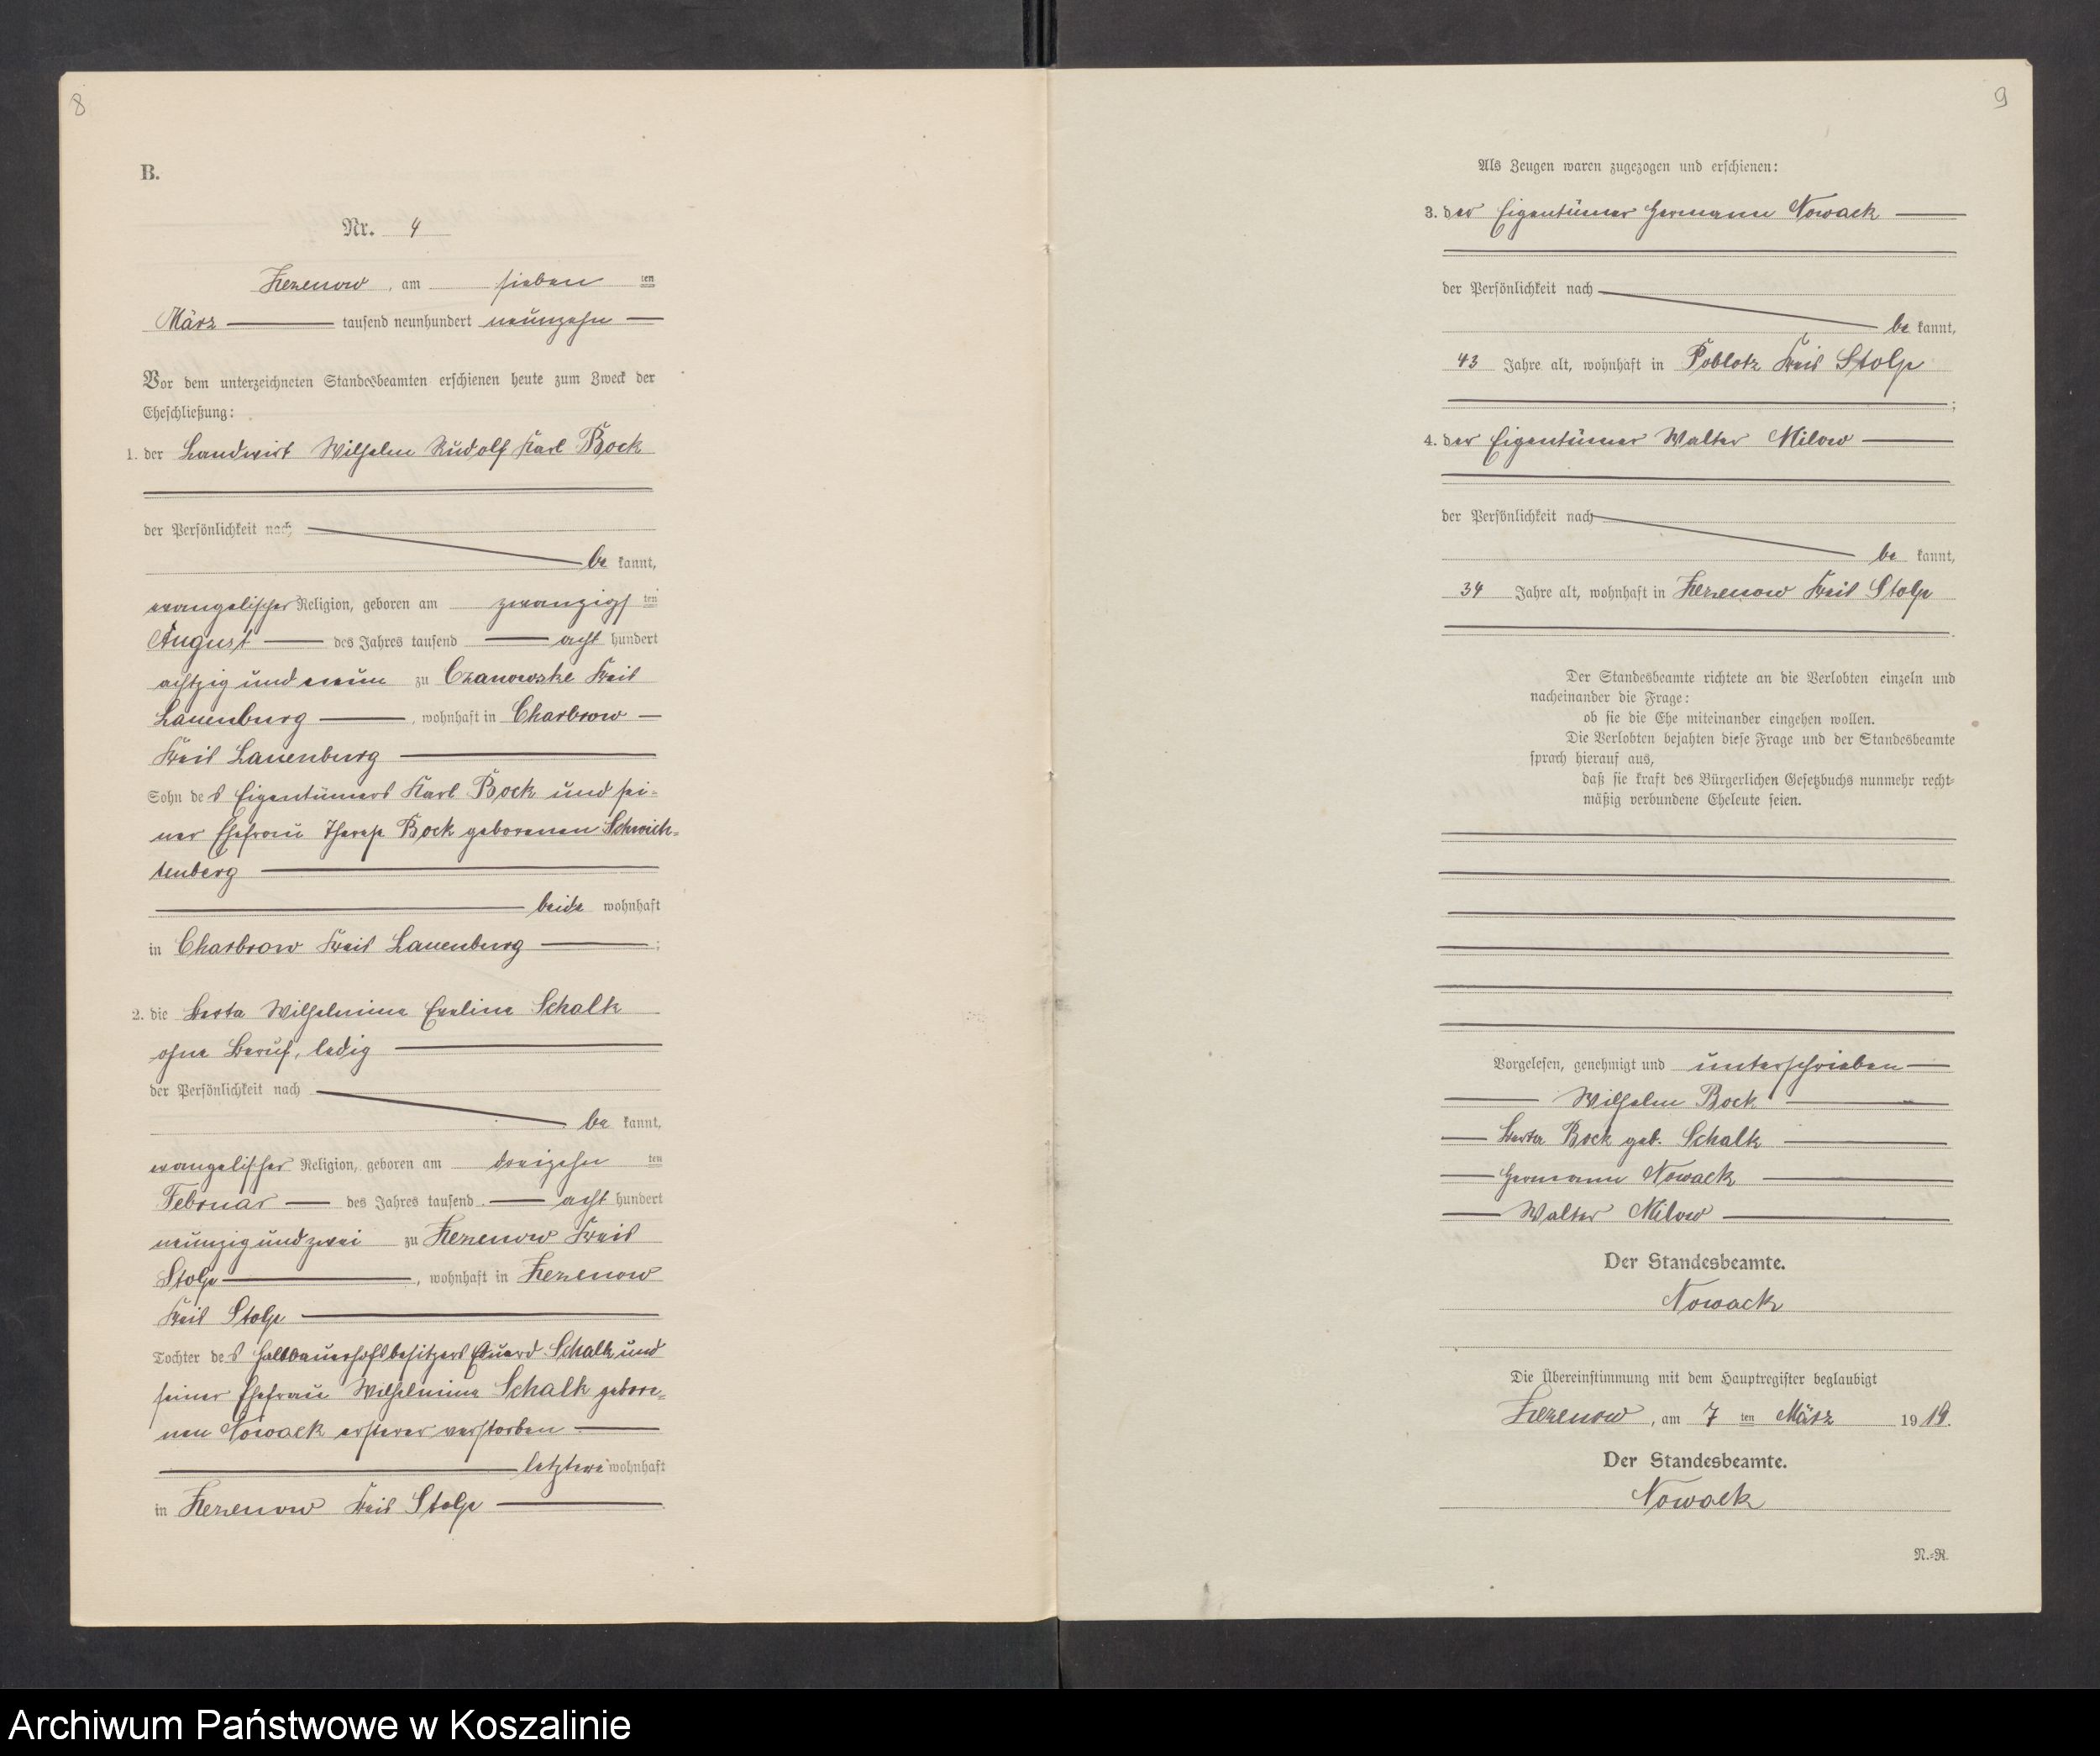 8
B.
Nr. 4
Zezenow, am sieben ten
März tausend neunhundert neunzehn
Vor dem unterzeichneten Standesbeamten erschienen heute zum Zweck der
Eheschließung:
1. der Landwirt Wilhelm Rudolf Karl Bock
der Persönlichkeit nach
be kannt,
evangelischer Religion, geboren am zwanzigs ten
August des Jahres tausend acht hundert
achtzig und neun zu Czanowske Kreis
Lauenburg, wohnhaft in Charbrow
Kreis Lauenburg
Sohn des Eigentümers Karl Bock und sei-
ner Ehefrau Therese Bock geborenen Schwich-
tenberg
beide wohnhaft
in Charbrow Kreis Lauenburg;
2. die Berta Wilhelmine Eveline Schalk
ohne Beruf, ledig
der Persönlichkeit nach
be kannt,
evangelischer Religion, geboren am dreizehn ten
Februar des Jahres tausend acht hundert
neunzig und zwei zu Zezenow Kreis
Stolp, wohnhaft in Zezenow
Kreis Stolp
Tochter des Halbbauerhofsbesitzers Eduard Schalk und
seiner Ehefrau Wilhelmine Schalk gebore-
nen Nowack ersterer verstorben
letztere wohnhaft
in Zezenow Kreis Stolp
9
Als Zeugen waren zugezogen und erschienen:
3. der Eigentümer Hermann Nowack
der Persönlichkeit nach
be kannt,
43 Jahre alt, wohnhaft in Poblotz Kreis Stolp
;
4. der Eigentümer Walter Milow
der Persönlichkeit nach
be kannt,
34 Jahre alt, wohnhaft in Zezenow Kreis Stolp
.
Der Standesbeamte richtete an die Verlobten einzeln und
nacheinander die Frage:
ob sie die Ehe miteinander eingehen wollen.
Die Verlobten bejahten diese Frage und der Standesbeamte
sprach hierauf aus,
daß sie kraft des Bürgerlichen Gesetzbuchs nunmehr recht-
mäßig verbundene Eheleute seien.
Vorgelesen, genehmigt und unterschrieben
Wilhelm Bock
Berta Bock geb. Schalk
Hermann Nowack
Walter Milow
Der Standesbeamte.
Nowack
Die Übereinstimmung mit dem Hauptregister beglaubigt
Zezenow, am 7 ten März 1919.
Der Standesbeamte.
Nowack
N.-R.
Archiwum Państwowe w Koszalinie